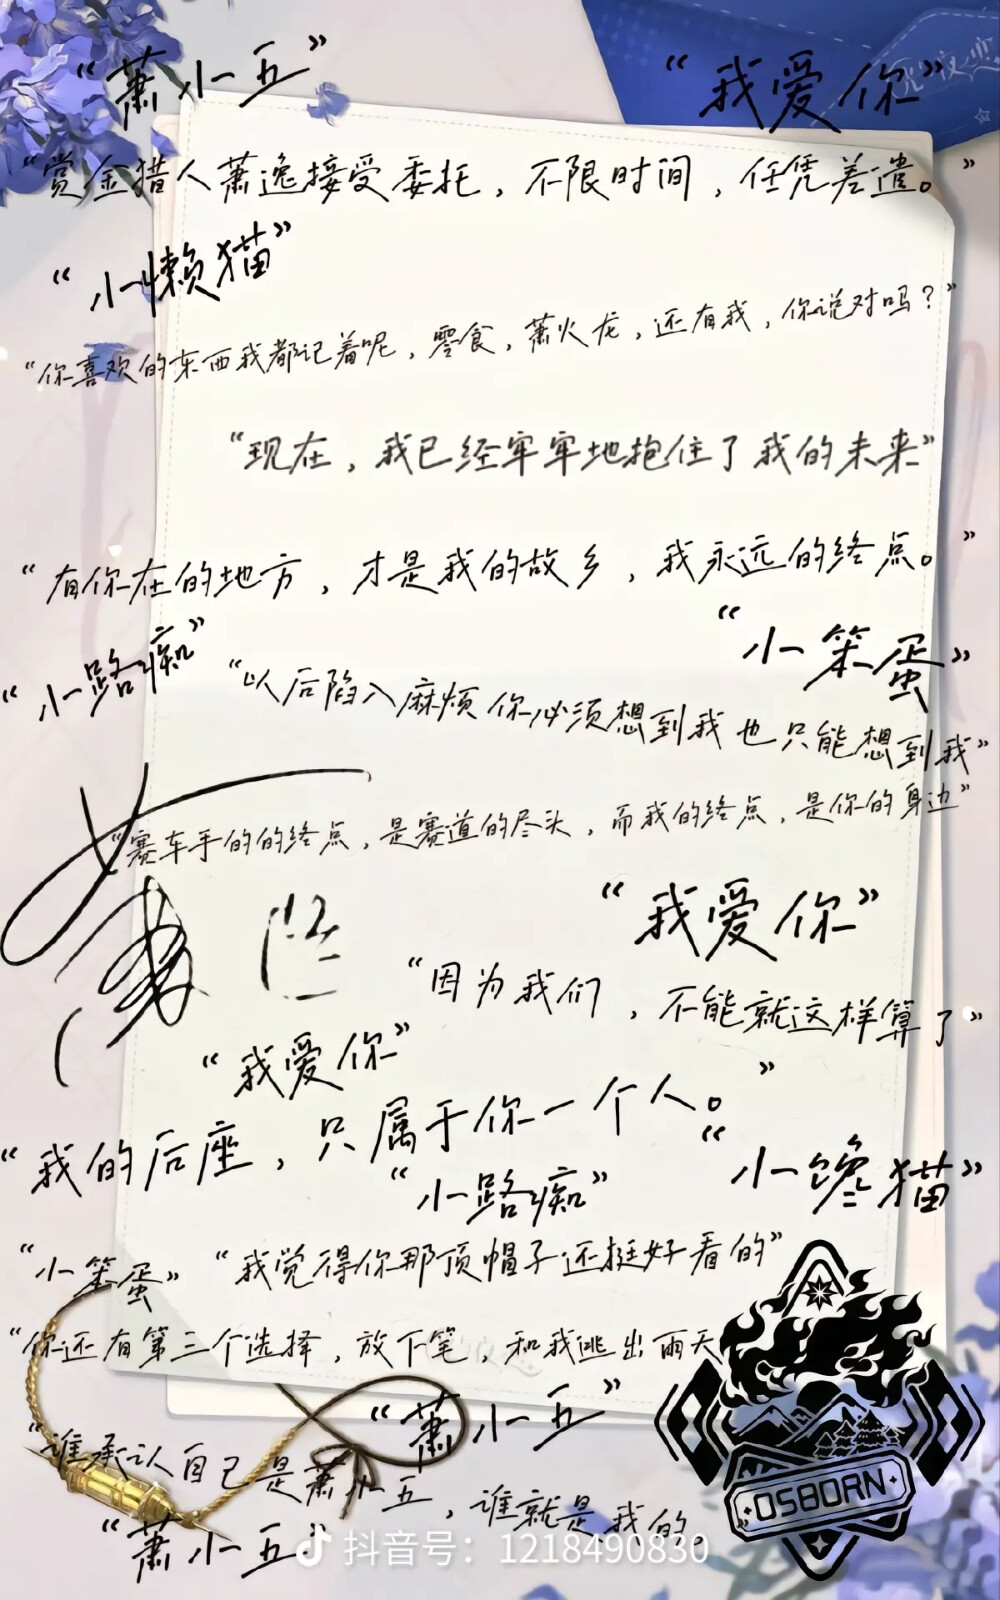 “萧小五”
“我爱你”
“赏金猎人萧逸接受委托，不限时间，任凭差遣。”
“小懒猫”
“你喜欢的东西我都记着呢，零食，萧火龙，还有我，你说对吗？”
“现在，我已经牢牢地抱住了我的未来”
“有你在的地方，才是我的故乡，我永远的终点。”
“小路痴”
“小笨蛋”
“以后陷入麻烦你必须想到我也只能想到我”
“赛车手的的终点，是赛道的尽头，而我的终点，是你的身边”
萧逸
“我爱你”
“因为我们，不能就这样算了”
“我爱你”
“我的后座，只属于你一个人。”
“小路痴”
“小馋猫”
“小笨蛋”
“我觉得你那顶帽子还挺好看的”
“你还有第三个选择，放下笔，和我逃出雨天
“萧小五”
“谁承认自己是萧小五，谁就是我的，
“萧小五”
OSBORN
抖音号：1218490830